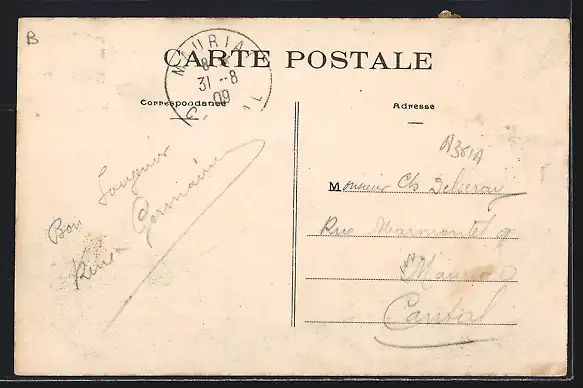 B
CARTE POSTALE
MAURIAC
31 - 8
09
CANTAL
Correspondance
Adresse
A361A
Bon Souvenir
René Germaine
Monsieur Ch Delseray
Rue Marmontel 9
Mauriac
Cantal